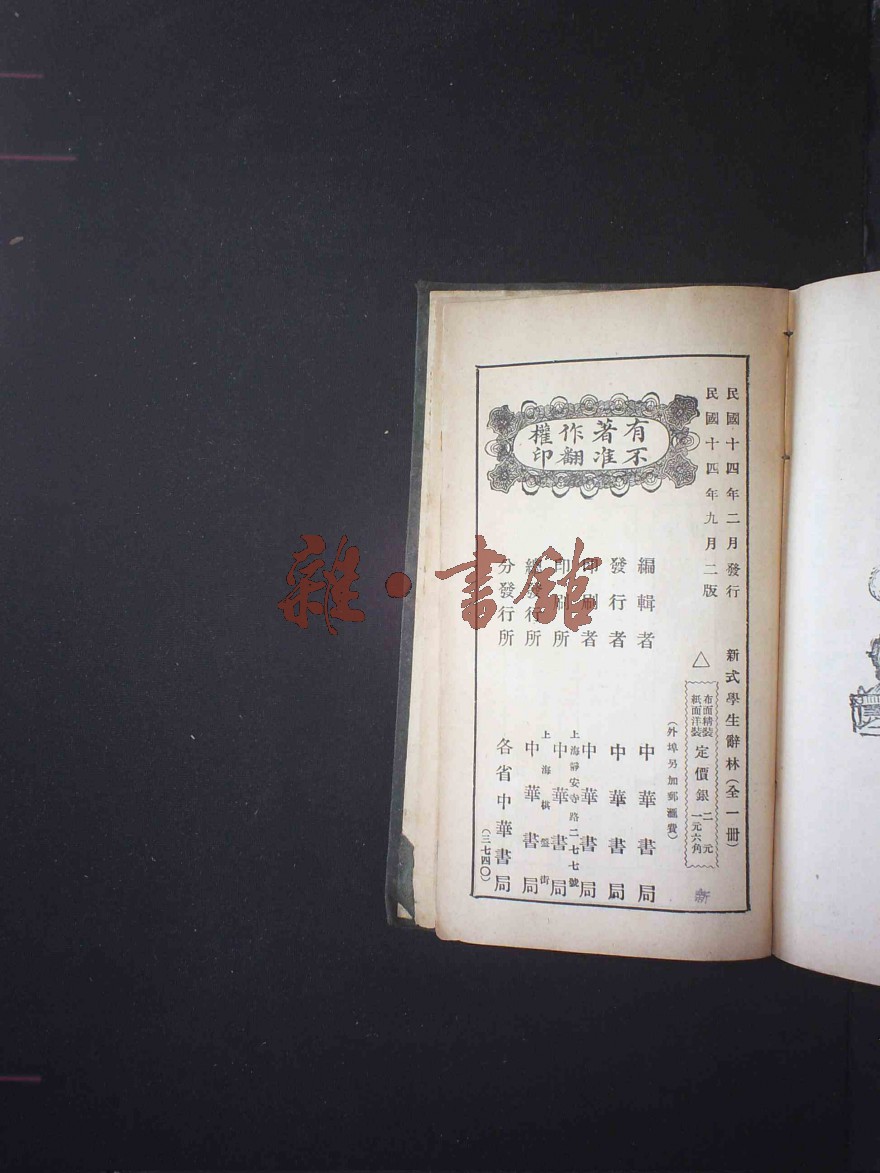 民國十四年二月發行
民國十四年九月二版
新式學生辭林（全一冊）
△
布面精裝
紙面洋裝
定價銀
二元
一元六角
（外埠另加郵滙費）
有著作權
不准翻印
編輯者 中華書局
發行者 中華書局
印刷者 中華書局
上海靜安寺路二七七號
印刷所 中華書局
上海棋盤街
總發行所 中華書局
分發行所 各省中華書局
（三七四〇）
新
雜·書館